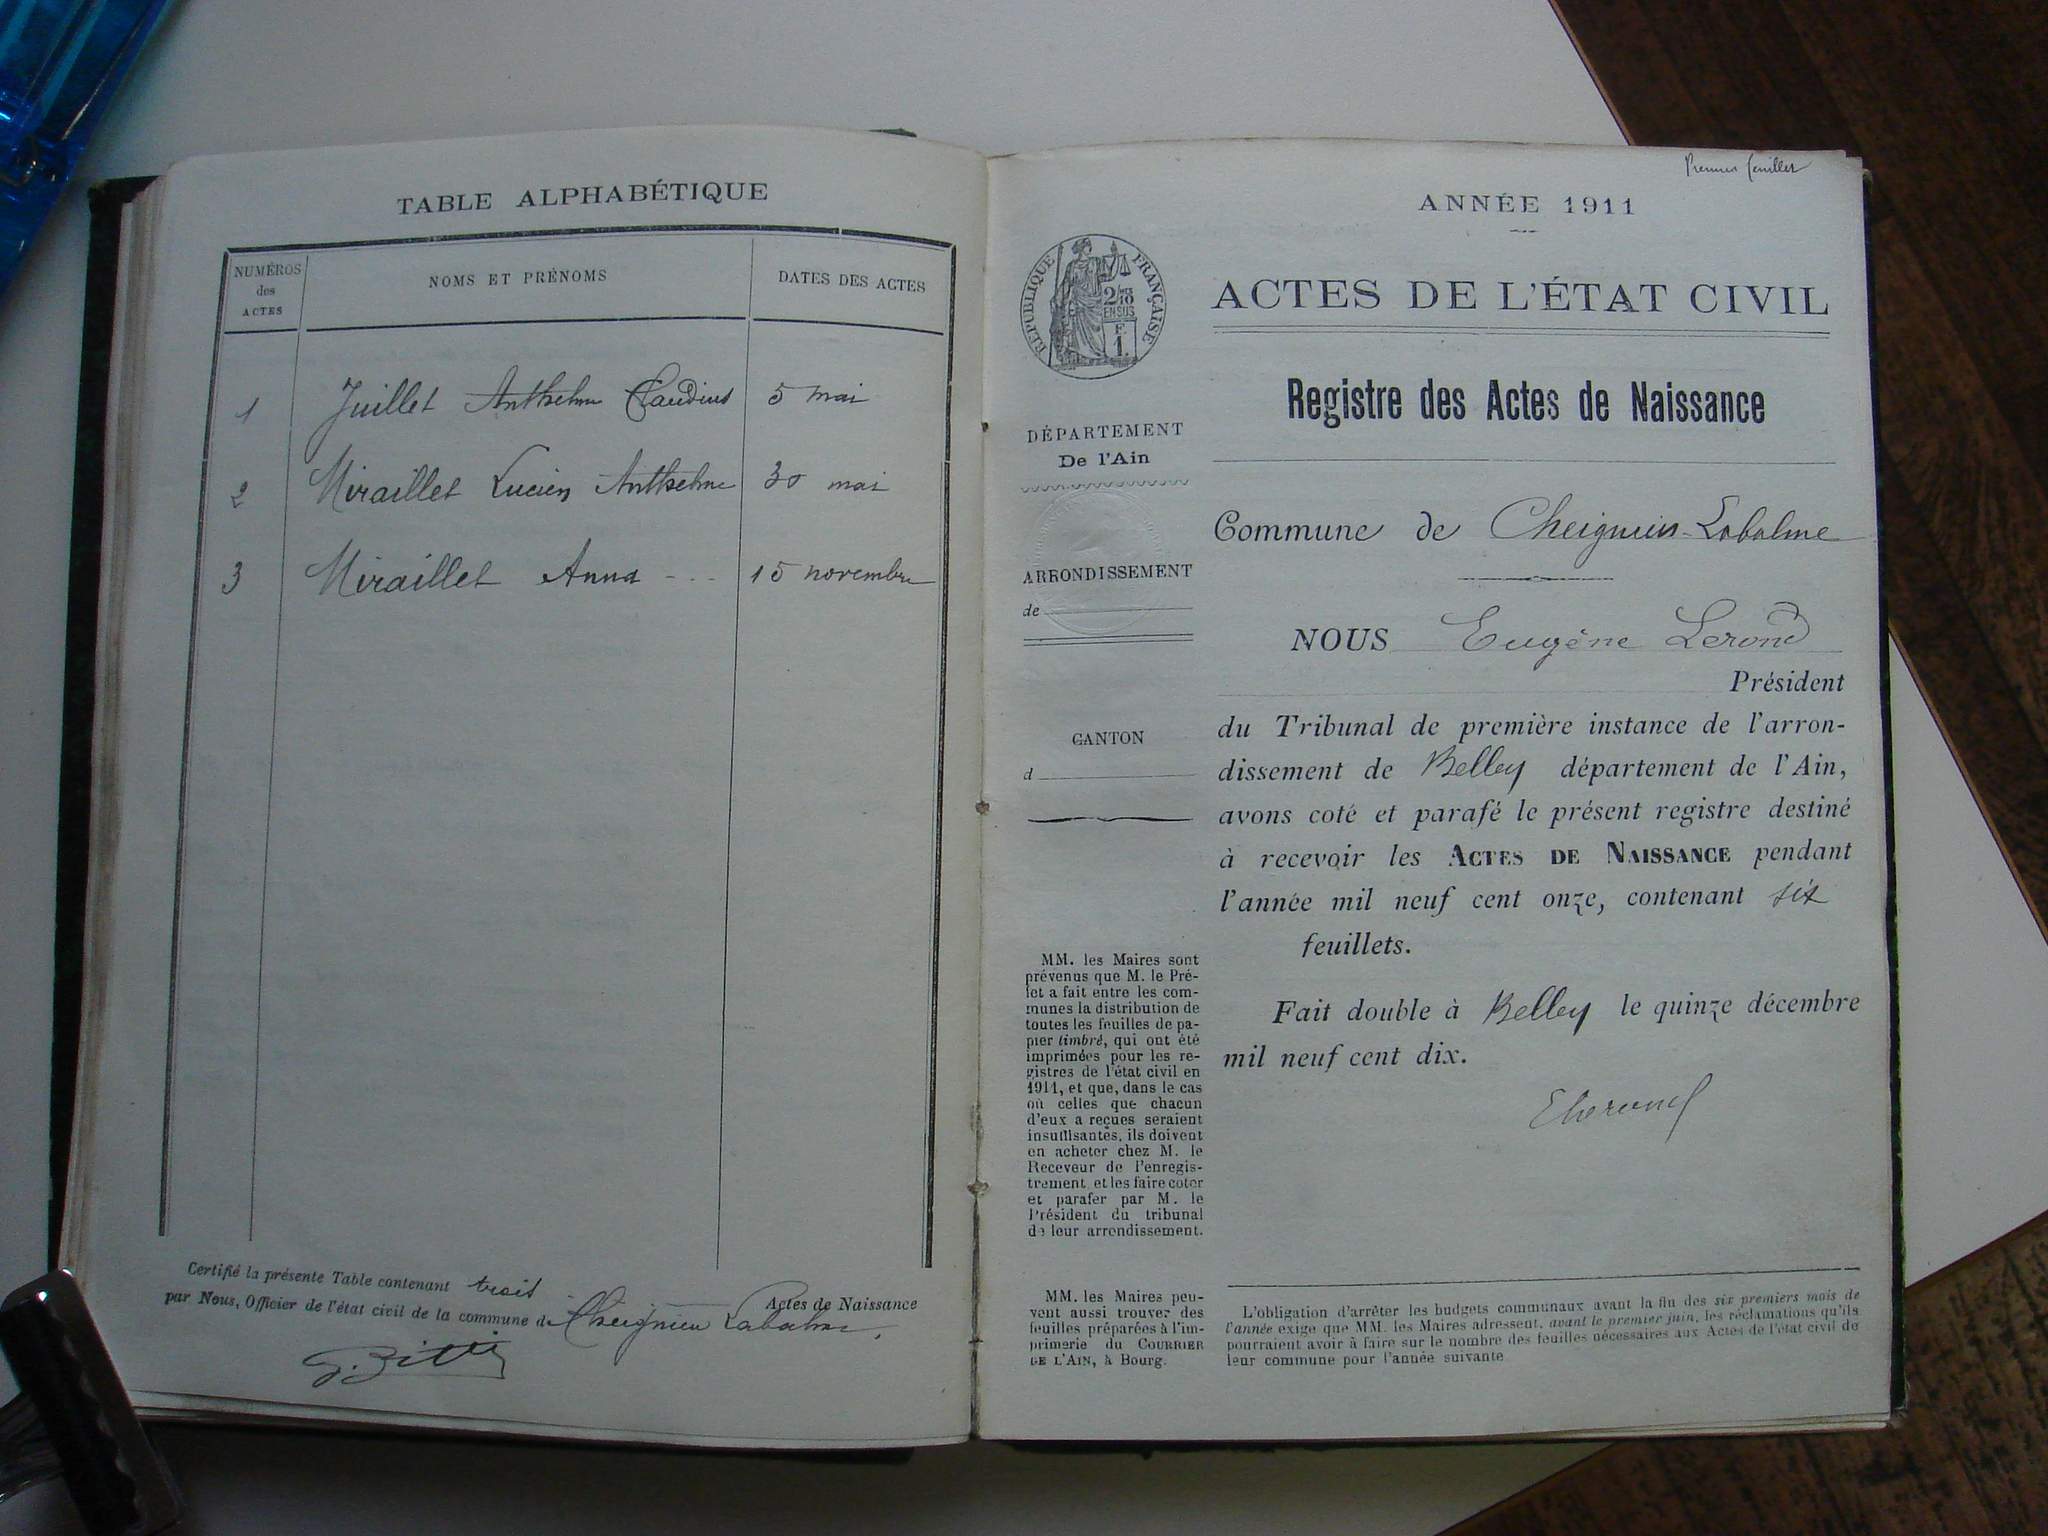 TABLE ALPHABÉTIQUE
NUMÉROS
des
ACTES
NOMS ET PRÉNOMS
DATES DES ACTES
1 Juillet Anthelme Claudius 5 mai
2 Miraillet Lucien Anthelme 30 mai
3 Miraillet Anna - - - 15 novembre
Certifié la présente Table contenant trois Actes de Naissance
par Nous, Officier de l'état civil de la commune de Cheignieu Labalme.
Premier feuillet
ANNÉE 1911
RÉPUBLIQUE FRANÇAISE
2/10
EN SUS
F.
1.
ACTES DE L'ÉTAT CIVIL
Registre des Actes de Naissance
DÉPARTEMENT
De l'Ain
ARRONDISSEMENT
de
CANTON
d
MM. les Maires sont
prévenus que M. le Pré-
fet a fait entre les com-
munes la distribution de
toutes les feuilles de pa-
pier timbré, qui ont été
imprimées pour les re-
gistres de l'état civil en
1911, et que, dans le cas
où celles que chacun
d'eux a reçues seraient
insuffisantes, ils doivent
en acheter chez M. le
Receveur de l'enregis-
trement, et les faire coter
et parafer par M. le
Président du tribunal
de leur arrondissement.
MM. les Maires peu-
vent aussi trouver des
feuilles préparées à l'im-
primerie du COURRIER
DE L'AIN, à Bourg.
Commune de Cheignieu-Labalme
NOUS Eugène Lerond
Président
du Tribunal de première instance de l'arron-
dissement de Belley département de l'Ain,
avons coté et parafé le présent registre destiné
à recevoir les ACTES DE NAISSANCE pendant
l'année mil neuf cent onze, contenant six
feuillets.
Fait double à Belley le quinze décembre
mil neuf cent dix.
L'obligation d'arrêter les budgets communaux avant la fin des six premiers mois de
l'année exige que MM. les Maires adressent, avant le premier juin, les réclamations qu'ils
pourraient avoir à faire sur le nombre des feuilles nécessaires aux Actes de l'état civil de
leur commune pour l'année suivante